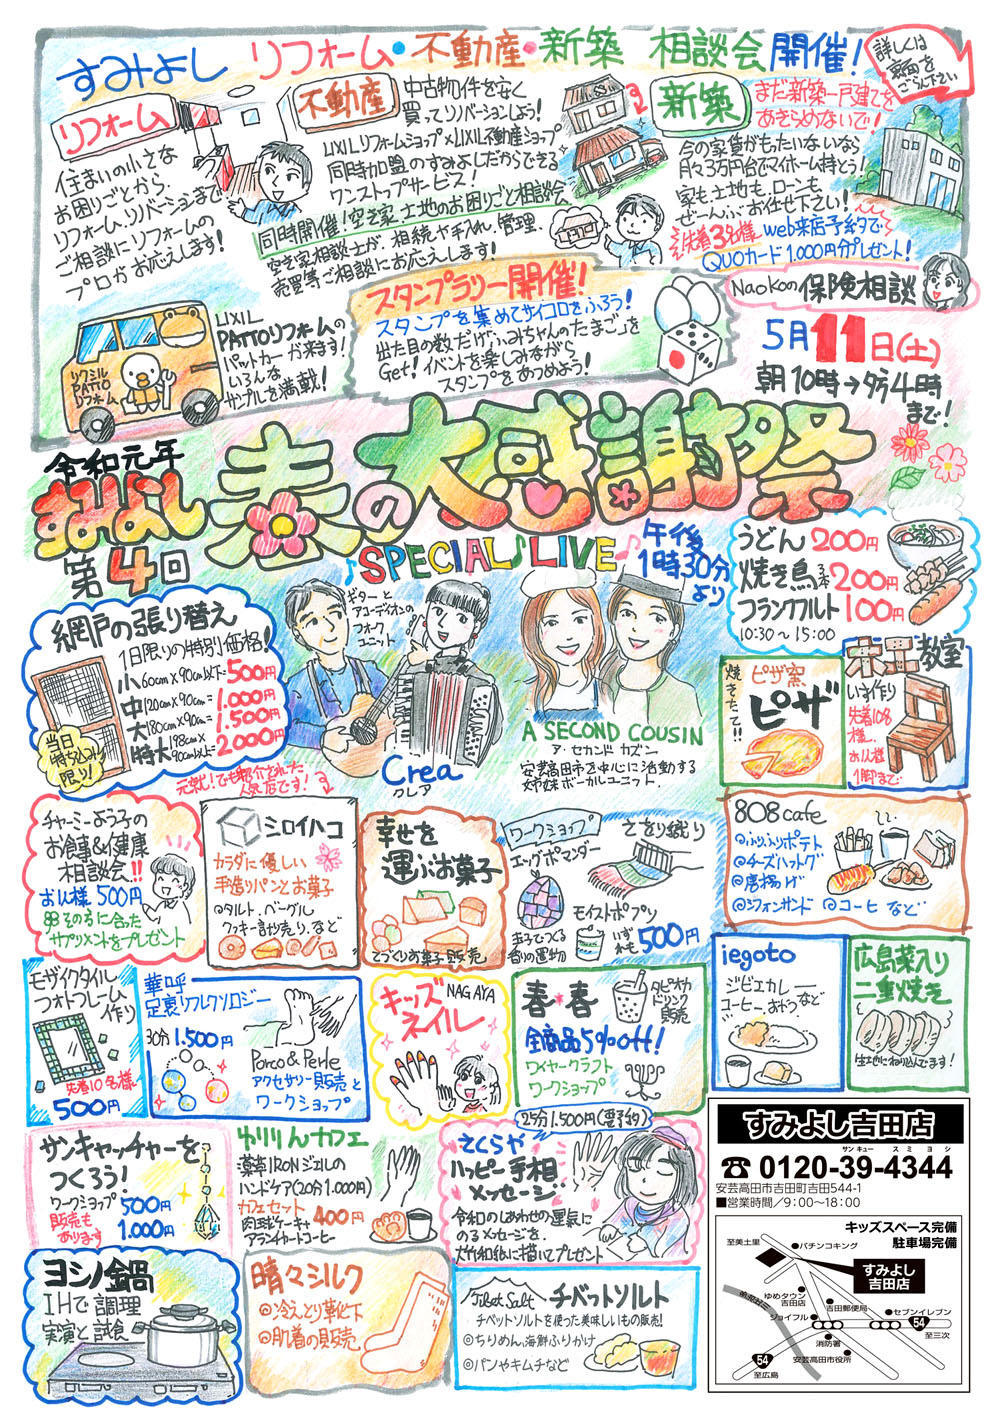 すみよし リフォーム・不動産・新築 相談会開催!
詳しくは
裏面を
ごらん下さい
リフォーム
住まいの小さな
お困りごとから、
リフォーム、リノベーションまで
ご相談にリフォームの
プロがお応えします!
不動産
中古物件を安く
買ってリノベーションしよう!
LIXILリフォームショップ×LIXIL不動産ショップ
同時加盟のすみよしだからできる
ワンストップサービス!
同時開催!空き家、土地のお困りごと相談会
空き家相談士が、相続や手入れ、管理、
売買等ご相談にお応えします!
新築
まだ新築一戸建てを
あきらめないで!
今の家賃がもったいないなら
月々3万円台でマイホーム持とう!
家も、土地も、ローンも
ぜーんぶ、お任せ下さい!
先着3名様 web来店予約で
QUOカード1,000円分プレゼント!
Naokoの保険相談
LIXIL
PATTOリフォームの
パットカーが来ます!
いろんな
サンプルを満載!
リクシル
PATTO
リフォーム
スタンプラリー開催!
スタンプを集めてサイコロをふろう!
出た目の数だけ「ふみちゃんのたまご」を
Get!イベントを楽しみながら
スタンプをあつめよう!
5月11日(土)
朝10時→夕方4時
まで!
令和元年
すみよし 春の大感謝祭
第4回
SPECIAL♪LIVE♪
午後
1時30分
より
ギターと
アコーディオンの
フォーク
ユニット
Crea
クレア
A SECOND COUSIN
ア・セカンド カズン
安芸高田市を中心に活動する
姉妹ボーカルユニット.
うどん 200円
焼き鳥 3本 200円
フランクフルト 100円
10:30〜15:00
網戸の張り替え
1日限りの特別価格!
小 60cm×90cm以下=500円
中 120cm×90cm=1,000円
大 180cm×90cm=1,500円
特大 198cm×90cm以上=2000円
当日
持ち込み
限り!
焼きたて!!
ピザ窯
ピザ
木工教室
いす作り
先着10名
様、
お1人様
1脚まで
元就!でも紹介された
人気店です!
チャーミーよう子の
お食事&健康
相談会!!
お1人様500円
その方に合った
サプリメントをプレゼント
シロイハコ
カラダに優しい
手造りパンとお菓子
◎タルト.ベーグル
クッキー計り売り.など
幸せを
運ぶお菓子
てづくりお菓子販売
ワークショップ
さをり織り
エッグポマンダー
玉子でつくる
香りの置物
モイストポプリ
いずれも500円
808cafe
◎ふりふりポテト
◎チーズハットグ
◎唐揚げ
◎シフォンサンド ◎コーヒーなど
モザイクタイル
フォトフレーム
作り
先着10名様
500円
華呼
足裏リフレクソロジー
30分1.500円
Porco & Perle
アクセサリー販売と
ワークショップ
キッズ
ネイル
NAGAYA
春*春
タピオカ
ドリンク
販売
全商品5%off!
ワイヤークラフト
ワークショップ
iegoto
ジビエカレー
コーヒー おやつなど
広島菜入り
二重焼き
生地にねり込んでます!
サンキャッチャーを
つくろう!
ワークショップ500円
販売も
あります
1.000円
ゆりりんカフェ
薬草IRONジェルの
ハンドケア(20分1.000円)
カフェセット
400円
肉球ケーキ+
アランチャートコーヒー
25分1.500円(要予約)
さくらや
ハッピー手相
メッセージ
令和のしあわせの運気に
のるメッセージを、
大竹和紙に描いてプレゼント
ヨシノ鍋
IHで調理
実演と試食
晴々シルク
◎冷えとり靴下
◎肌着の販売
Tibet Salt
チベットソルト
チベットソルトを使った美味しいもの販売!
◎ちりめん、海鮮ふりかけ
◎パンやキムチなど
すみよし吉田店
サンキュー スミヨシ
☎ 0120-39-4344
安芸高田市吉田町吉田544-1
■営業時間/9:00〜18:00
キッズスペース完備
駐車場完備
至美土里
パチンコキング
すみよし
吉田店
ゆめタウン
吉田店
吉田郵便局
ジョイフル
セブンイレブン
54
至三次
消防署
安芸高田市役所
54
至広島